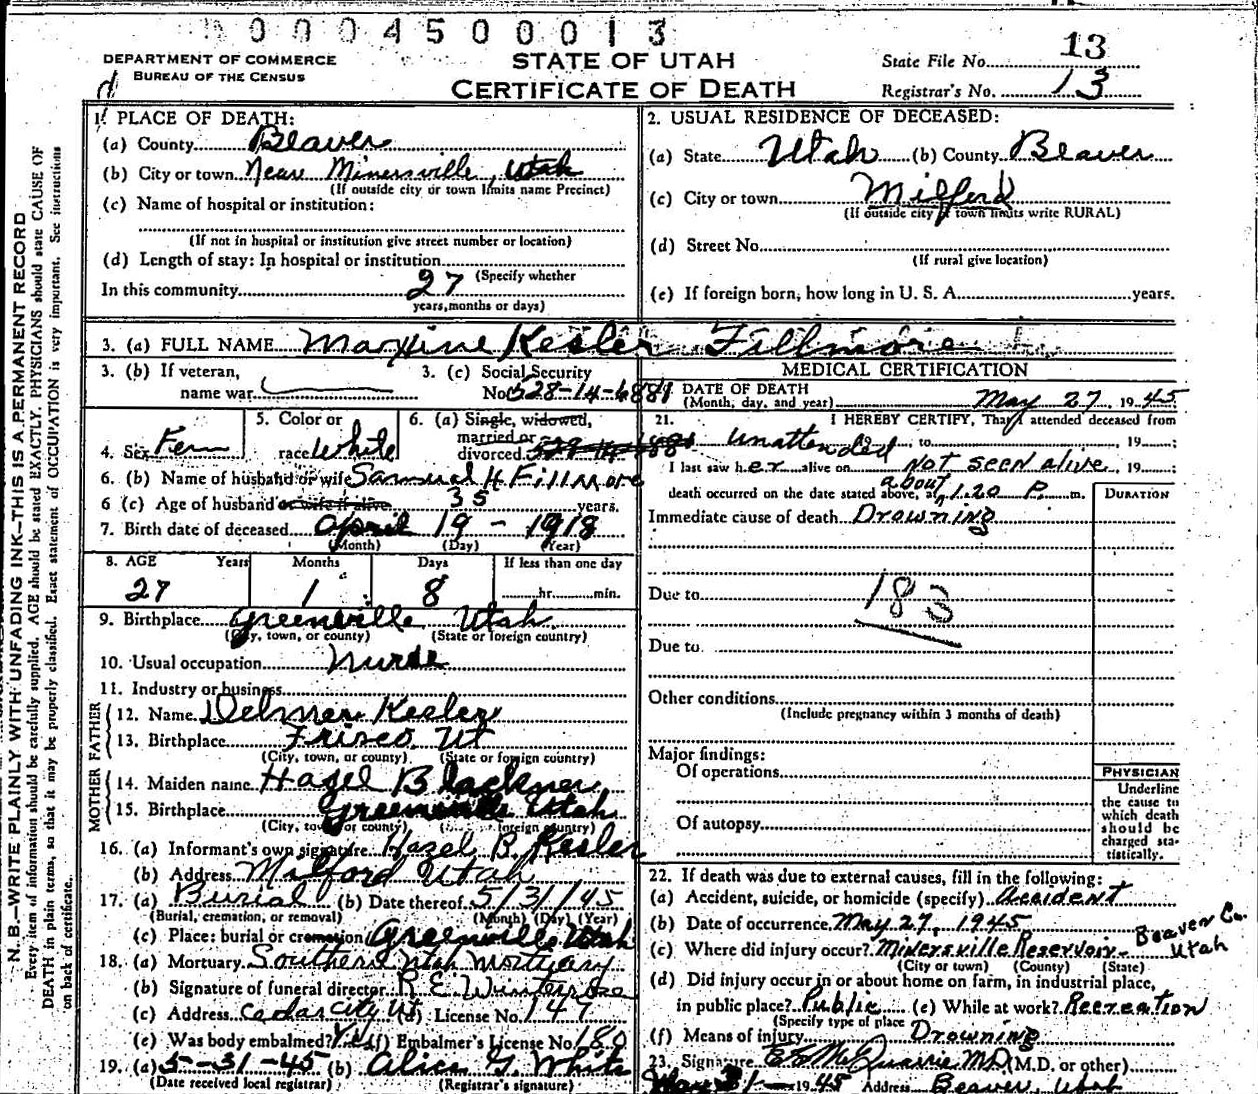 0004500013
DEPARTMENT OF COMMERCE
BUREAU OF THE CENSUS
STATE OF UTAH
CERTIFICATE OF DEATH
State File No. 13
Registrar's No. 13
N. B.—WRITE PLAINLY WITH UNFADING INK—THIS IS A PERMANENT RECORD
Every item of information should be carefully supplied. AGE should be stated EXACTLY. PHYSICIANS should state CAUSE OF
DEATH in plain terms, so that it may be properly classified. Exact statement of OCCUPATION is very important. See instructions
on back of certificate.
1. PLACE OF DEATH:
(a) County Beaver
(b) City or town Near Minersville, Utah
(If outside city or town limits name Precinct)
(c) Name of hospital or institution:
(If not in hospital or institution give street number or location)
(d) Length of stay: In hospital or institution
(Specify whether
In this community 27
years, months or days)
2. USUAL RESIDENCE OF DECEASED:
(a) State Utah (b) County Beaver
(c) City or town Milford
(If outside city or town limits write RURAL)
(d) Street No.
(If rural give location)
(e) If foreign born, how long in U. S. A. years.
3. (a) FULL NAME Maxine Kesler Fillmore
3. (b) If veteran,
name war
3. (c) Social Security
No. 528-14-6881
4. Sex Fem
5. Color or
race White
6. (a) Single, widowed,
married or
divorced
6. (b) Name of husband or wife Samuel H Fillmore
6 (c) Age of husband or wife if alive 35 years.
7. Birth date of deceased April 19 - 1918
(Month) (Day) (Year)
8. AGE Years Months Days If less than one day
27 1 8 hr. min.
9. Birthplace Greenville Utah
(City, town, or county) (State or foreign country)
10. Usual occupation Nurse
11. Industry or business
FATHER
12. Name Delmer Kesler
13. Birthplace Frisco, Ut
(City, town, or county) (State or foreign country)
MOTHER
14. Maiden name Hazel Blackner
15. Birthplace Greenville Utah
(City, town, or county) (State or foreign country)
16. (a) Informant's own signature Hazel B. Kesler
(b) Address Milford Utah
17. (a) Burial (b) Date thereof 5/31/45
(Burial, cremation, or removal) (Month) (Day) (Year)
(c) Place: burial or cremation Greenville Utah
18. (a) Mortuary Southern Utah Mortuary
(b) Signature of funeral director R. E. Winterose
(c) Address Cedar City Ut (d) License No. 147
(e) Was body embalmed? Yes (f) Embalmer's License No. 180
19. (a) 5-31-45 (b) Alice G. White
(Date received local registrar) (Registrar's signature)
MEDICAL CERTIFICATION
DATE OF DEATH
(Month, day, and year) May 27, 1945
21. I HEREBY CERTIFY, That I attended deceased from
Unattended to 19 ;
I last saw her alive on Not seen alive, 19 ;
death occurred on the date stated above, at about 1.20 P. m.
DURATION
Immediate cause of death Drowning
Due to 183
Due to
Other conditions
(Include pregnancy within 3 months of death)
Major findings:
Of operations
Of autopsy
PHYSICIAN
Underline
the cause to
which death
should be
charged sta-
tistically.
22. If death was due to external causes, fill in the following:
(a) Accident, suicide, or homicide (specify) Accident
(b) Date of occurrence May 27, 1945
(c) Where did injury occur? Minersville Reservoir - Beaver Co. Utah
(City or town) (County) (State)
(d) Did injury occur in or about home on farm, in industrial place,
in public place? Public (e) While at work? Recreation
(Specify type of place
(f) Means of injury Drowning
23. Signature McQuarrie M.D. (M.D. or other)
May 31 - 1945 Address Beaver, Utah